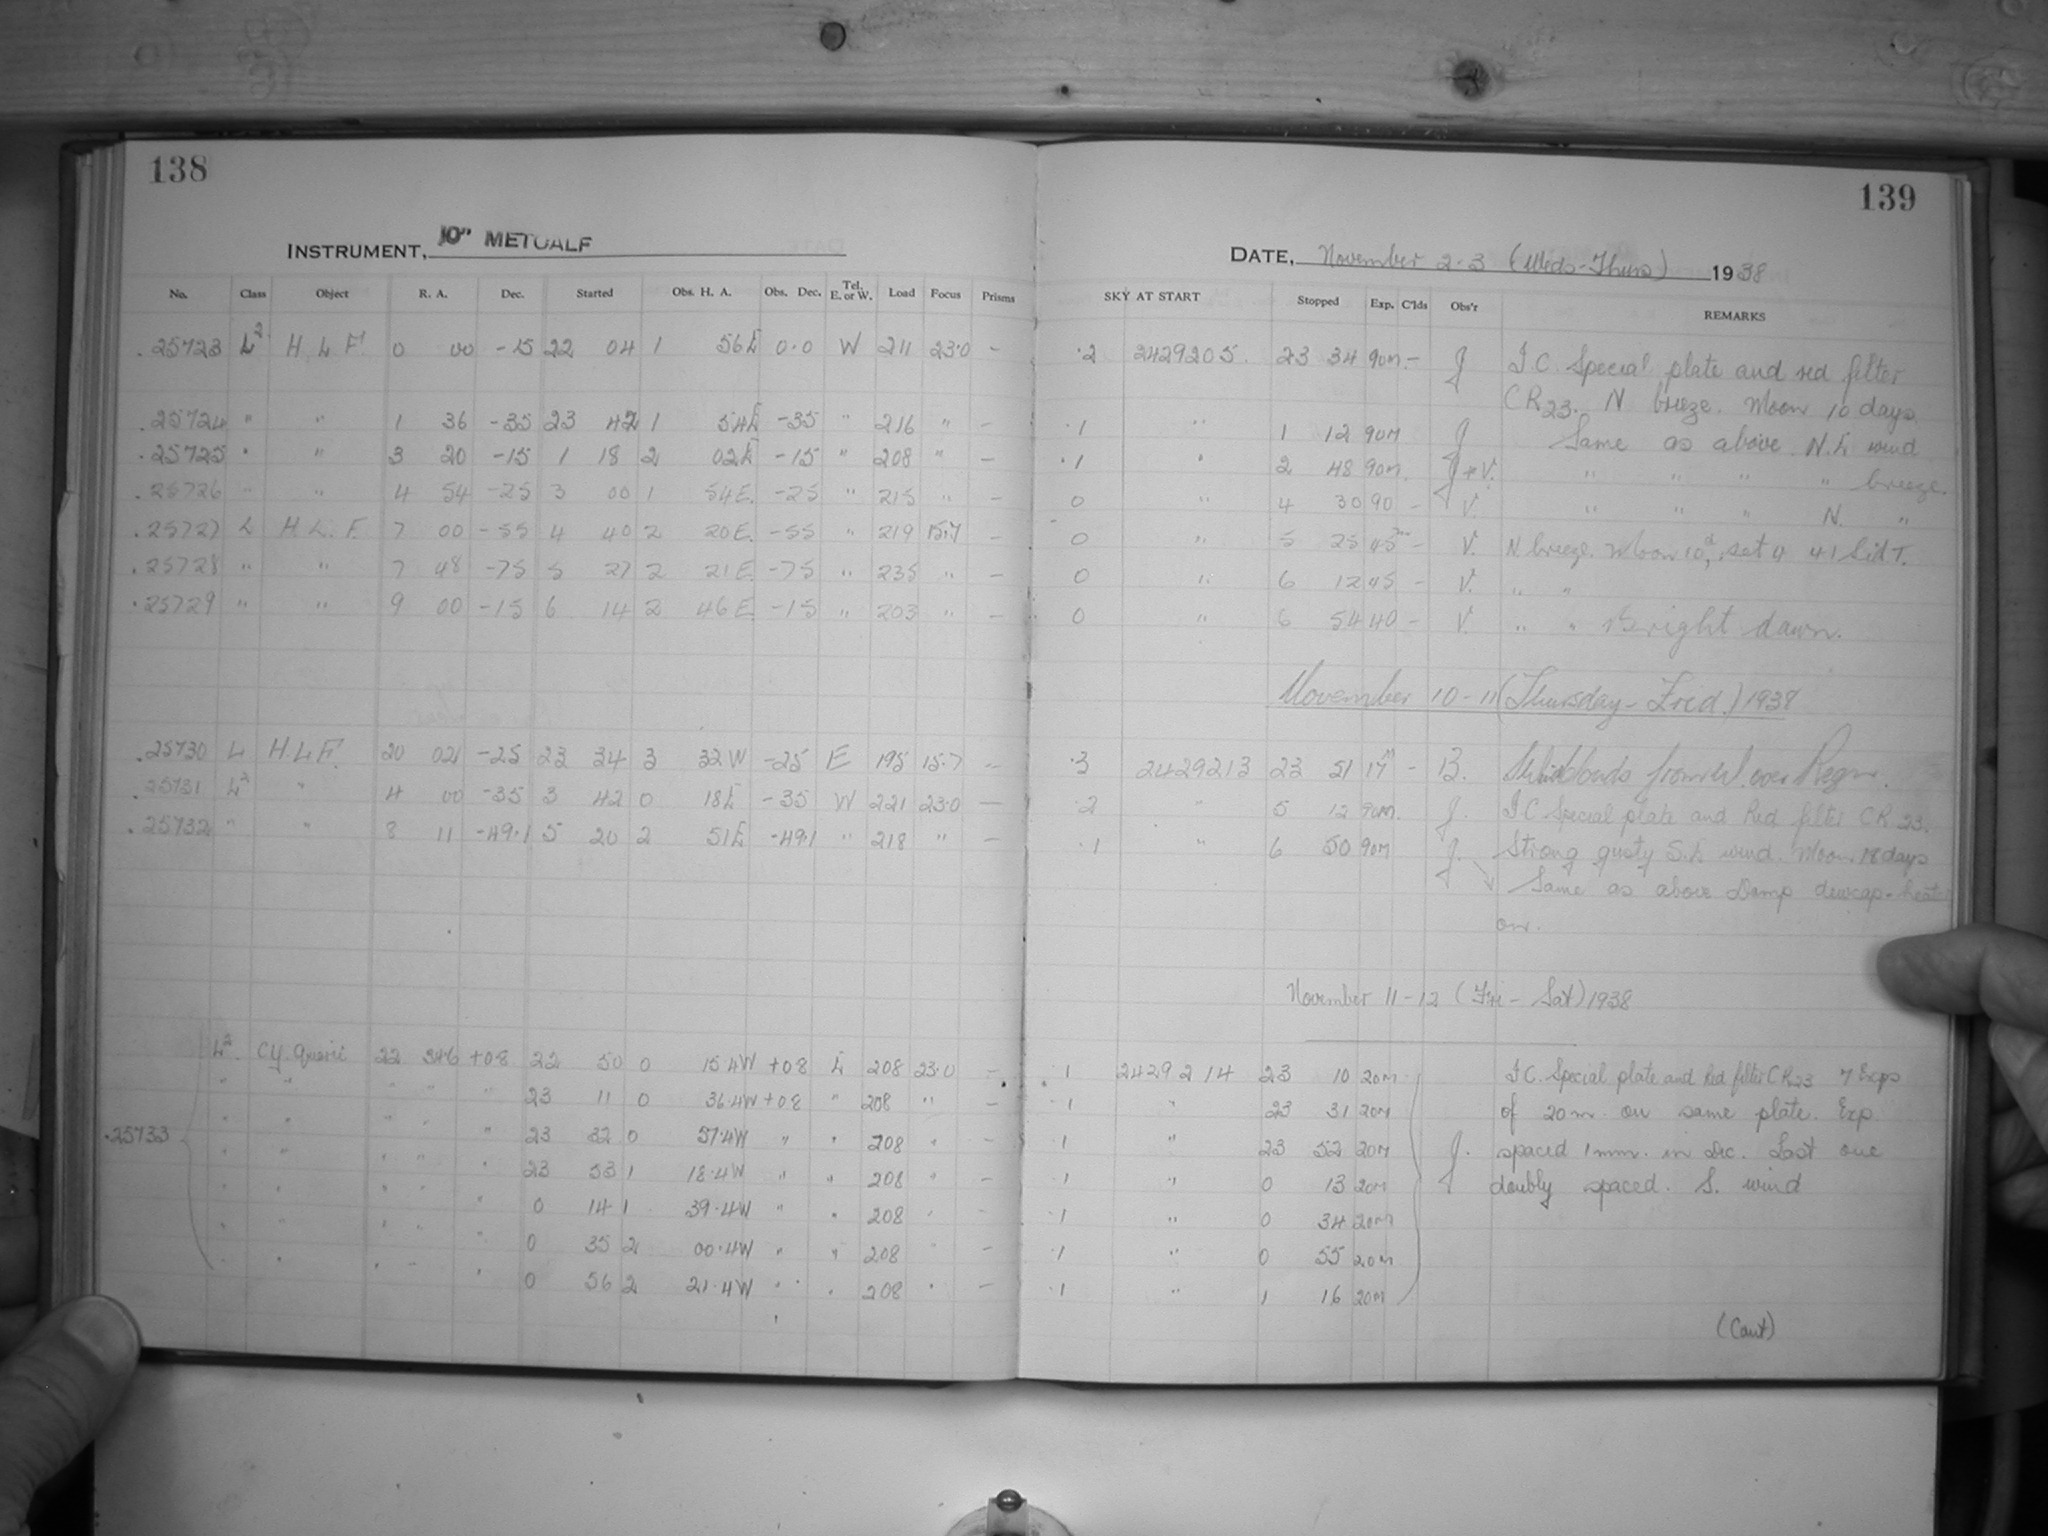 138
INSTRUMENT, 10" METCALF
No. Class Object R. A. Dec. Started Obs. H. A. Obs. Dec. Tel. E. or W. Load Focus Prisms
.25723 L² H L F. 0 00 -15 22 04 1 56E 0.0 W 211 23.0 -
.25724 " " 1 36 -35 23 42 1 54E -35 " 216 " -
.25725 " " 3 20 -15 1 18 2 02E -15 " 208 " -
.25726 " " 4 54 -25 3 00 1 54E. -25 " 215 " -
.25727 L H. L. F. 7 00 -55 4 40 2 20E. -55 " 219 15.7 -
.25728 " " 7 48 -75 5 27 2 21E. -75 " 235 " -
.25729 " " 9 00 -15 6 14 2 46E -15 " 203 " -
.25730 L H.L.F. 20 02 -25 23 34 3 32W -25 E 195 15.7 -
.25731 L² " 4 00 -35 3 42 0 18E -35 W 221 23.0 -
.25732 " " 8 11 -49.1 5 20 2 51E -49.1 " 218 " -
L² 22 34.6 +08 22 50 0 15.4W +08 E 208 23.0 -
" " " " " 23 11 0 36.4W +08 " 208 " -
.25733 " " " " " 23 32 0 57.4W " " 208 " -
" " " " " 23 53 1 18.4W " " 208 " -
" " " " " 0 14 1 39.4W " " 208 " -
" " " " " 0 35 2 00.4W " " 208 " -
" " " " " 0 56 2 21.4W " " 208 " -
139
DATE, November 2-3 (Weds-Thurs) 1938
SKY AT START Stopped Exp. C'lds Obs'r REMARKS
.2 2429205. 23 34 90m - J I.C. Special plate and red filter
CR23. N breeze. Moon 10 days
.1 " 1 12 90m J Same as above N.E wind
.1 " 2 48 90m. J+V. " " " " breeze.
0 " 4 30 90 - V. " " " N. "
0 " 5 25 45m - V. N. breeze. Moon 10d, set 4 41 Sid T.
0 " 6 12 45 - V. " "
0 " 6 54 40 - V. " " Bright dawn.
November 10-11 (Thursday-Fred.) 1938
.3 2429213 23 51 17m - B.
.2 " 5 12 90m. J. I C Special plate and Red filter CR 23.
.1 " 6 50 90m J. Strong gusty S.E wind. Moon 18 days
Same as above Damp dewcap-heater
on.
November 11-12 (Fri-Sat) 1938
.1 2429214 23 10 20m I C. Special plate and Red filter CR23 7 Exps
.1 " 23 31 20m of 20m. on same plate. Exp.
.1 " 23 52 20m J. spaced 1mm. in Dec. Last one
.1 " 0 13 20m doubly spaced. S. wind
.1 " 0 34 20m
.1 " 0 55 20m
.1 " 1 16 20m
(Cont)